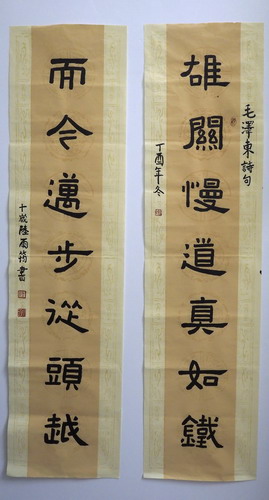 毛澤東詩句
雄關慢道真如鐵
丁酉年冬
而今邁步從頭越
十歲陸雨筠書